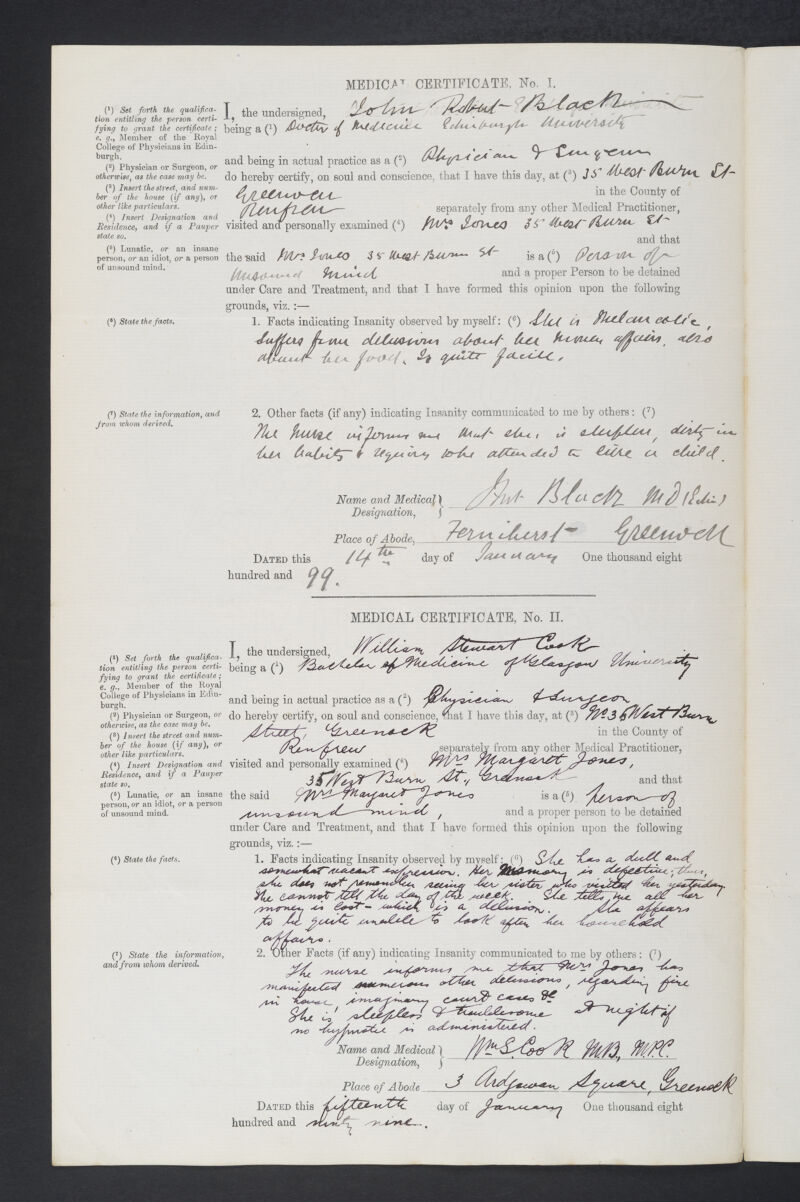 MEDICAL CERTIFICATE, No. I.
(1) Set forth the qualifica-
tion entitling the person certi-
fying to grant the certificate;
e. g., Member of the Royal
College of Physicians in Edin-
burgh.
(2) Physician or Surgeon, or
otherwise, as the case may be.
(3) Insert the street, and num-
ber of the house (if any), or
other like particulars.
(4) Insert Designation and
Residence, and if a Pauper
state so.
(5) Lunatic, or an insane
person, or an idiot, or a person
of unsound mind.
I, the undersigned, John Robert Black
being a (1) Doctor of Medicine Edinburgh University
and being in actual practice as a (2) Physician & Surgeon
do hereby certify, on soul and conscience, that I have this day, at (3) 35 West Burn St
Greenock in the County of
Renfrew separately from any other Medical Practitioner,
visited and personally examined (4) Mrs Jones 35 West Burn St
and that
the said Mrs Jones 35 West Burn St is a (5) Person of
unsound mind and a proper Person to be detained
under Care and Treatment, and that I have formed this opinion upon the following
grounds, viz. :—
(6) State the facts.
1. Facts indicating Insanity observed by myself: (6) She is Melancolic,
Suffers from delusions about her money affairs, also
about her food. Is quite facile.
(7) State the information, and
from whom derived.
2. Other facts (if any) indicating Insanity communicated to me by others: (7)
The Nurse informs me that she is sleepless, dirty in
her habits & requires to be attended to like a child.
Name and Medical Designation, Jno Black MD (Edin)
Place of Abode, Ferniherst Greenock
DATED this 14th day of January One thousand eight
hundred and 99.
MEDICAL CERTIFICATE, No. II.
(1) Set forth the qualifica-
tion entitling the person certi-
fying to grant the certificate;
e. g., Member of the Royal
College of Physicians in Edin-
burgh.
(2) Physician or Surgeon, or
otherwise, as the case may be.
(3) Insert the street and num-
ber of the house (if any), or
other like particulars.
(4) Insert Designation and
Residence, and if a Pauper
state so.
(5) Lunatic, or an insane
person, or an idiot, or a person
of unsound mind.
I, the undersigned, William Stewart Cook
being a (1) Bachelor of Medicine of Glasgow University
and being in actual practice as a (2) Physician & Surgeon
do hereby certify, on soul and conscience, that I have this day, at (3) No. 35 West Burn
Street, Greenock in the County of
Renfrew separately from any other Medical Practitioner,
visited and personally examined (4) Mrs Margaret Jones,
35 West Burn St., Greenock and that
the said Mrs Margaret Jones is a (5) person of
unsound mind, and a proper person to be detained
under Care and Treatment, and that I have formed this opinion upon the following
grounds, viz. :—
(6) State the facts.
1. Facts indicating Insanity observed by myself: (6) She has a dull and
somewhat vacant expression. Her memory is defective; thus,
she does not remember seeing her sister who visited her yesterday.
She cannot tell the day of the week. She tells me all her
money is lost - which is a delusion. She appears
to be quite unable to look after her household
affairs.
(7) State the information,
and from whom derived.
2. Other Facts (if any) indicating Insanity communicated to me by others: (7)
The nurse informs me that Mrs Jones has
manifested numerous other delusions, regarding fire
in house, imaginary court cases &c
She is sleepless & troublesome at night if
no hypnotic is administered.
Name and Medical Designation, Wm S. Cook M.B., M.P.C.
Place of Abode 3 Ardgowan Square, Greenock
DATED this fifteenth day of January One thousand eight
hundred and ninty nine.